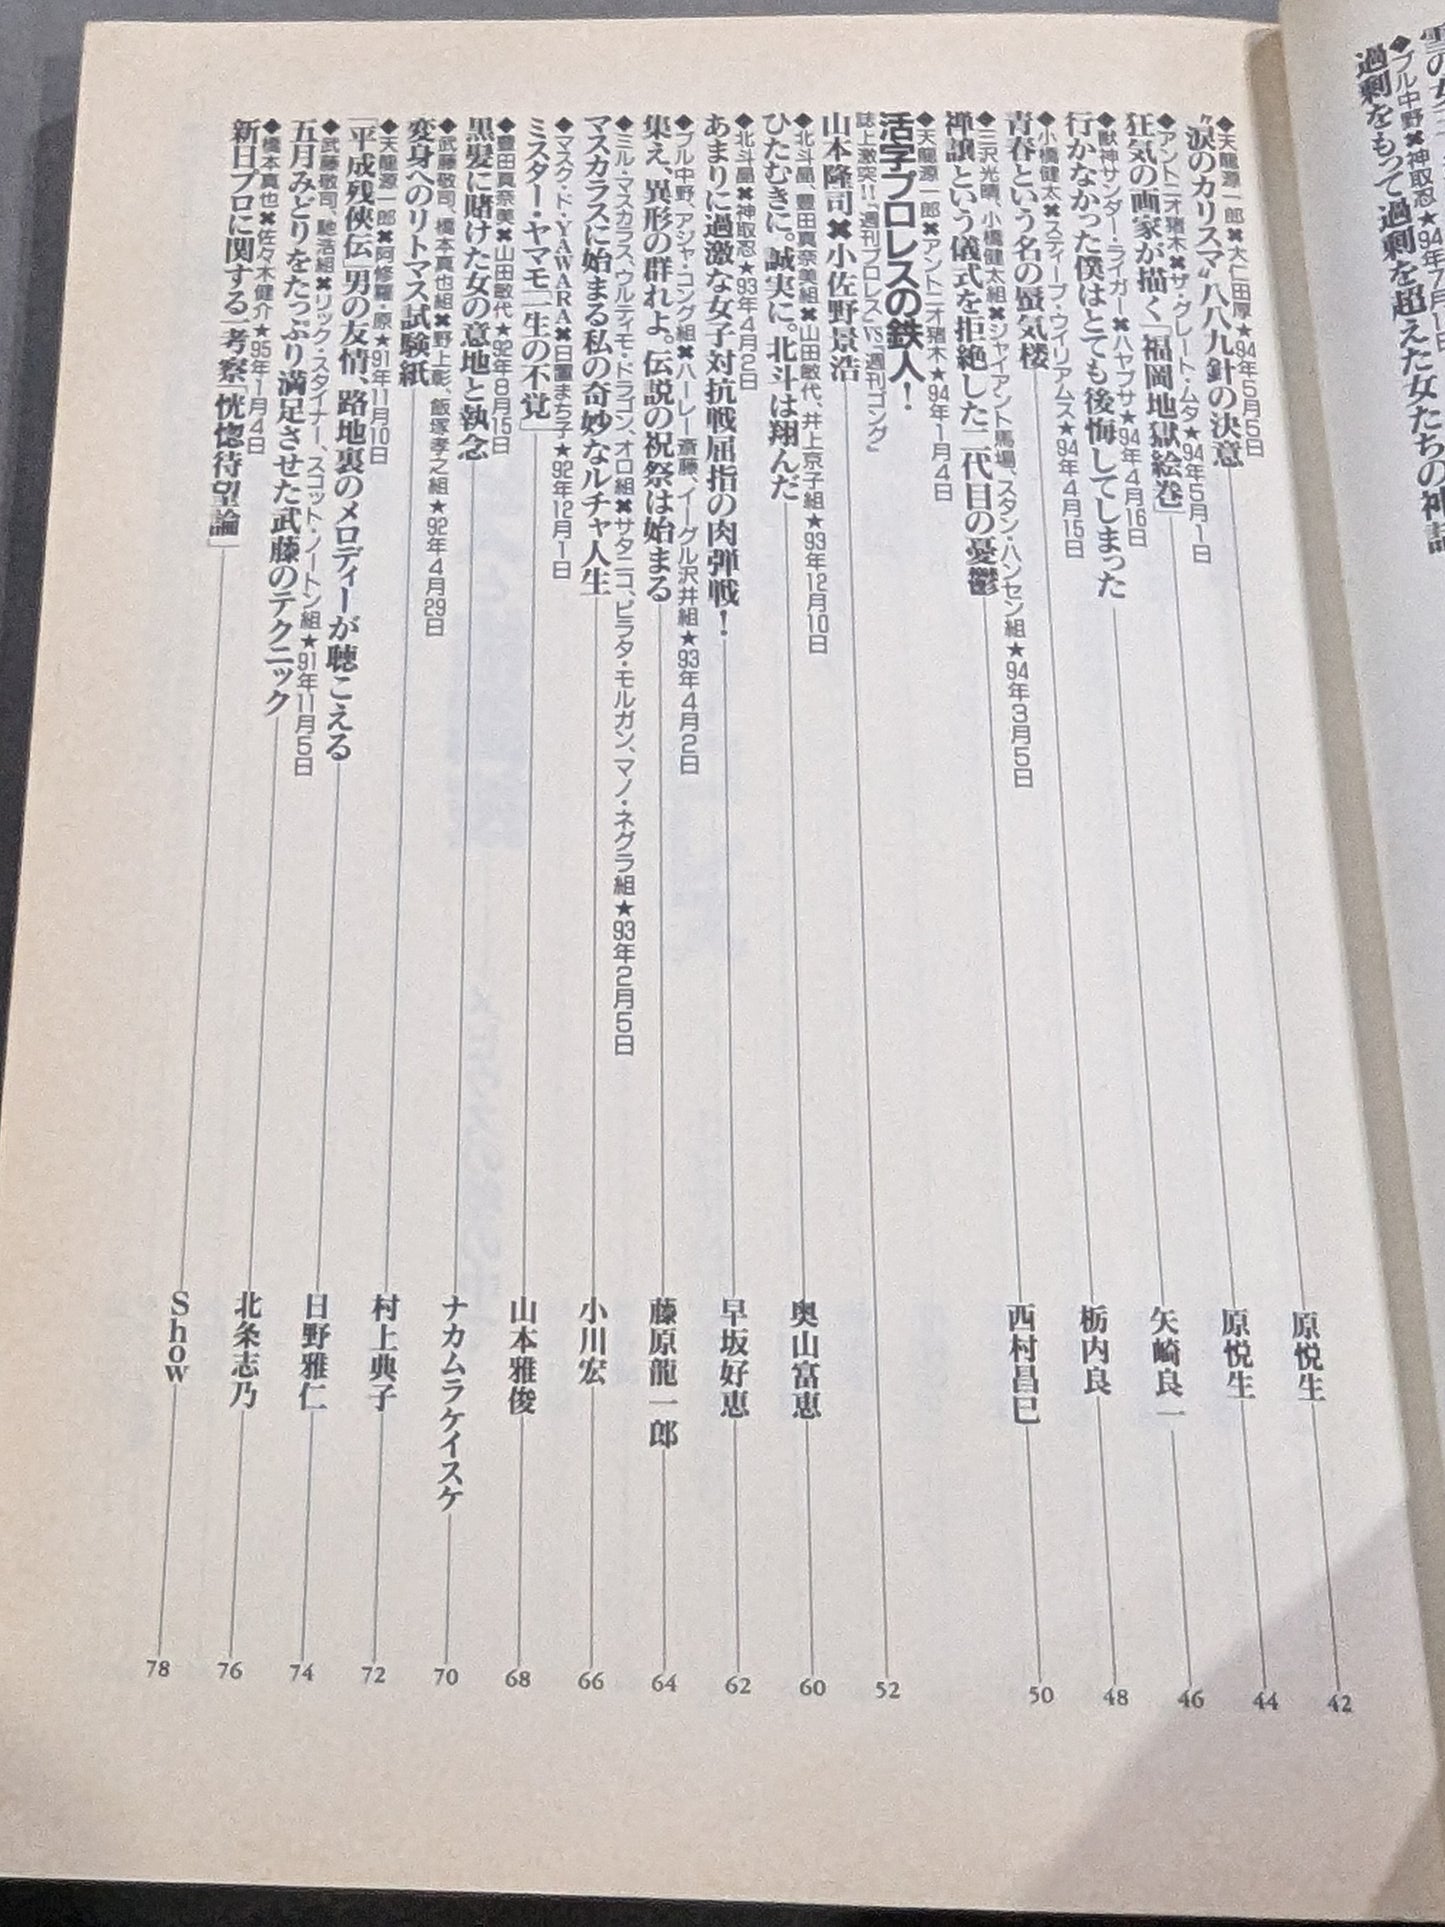 ◆ブル中野✖神取忍★94年7月1
過剰をもって過剰を超えた女たちの神話
◆天龍源一郎✖大仁田厚★94年5月5日
“涙のカリスマ”八八九針の決意 原悦生 42
◆アントニオ猪木✖ザ・グレート・ムタ★94年5月1日
狂気の画家が描く「福岡地獄絵巻」 原悦生 44
◆獣神サンダー・ライガー✖ハヤブサ★94年4月16日
行かなかった僕はとても後悔してしまった 矢崎良一 46
◆小橋健太✖スティーブ・ウイリアムス★94年4月15日
青春という名の蜃気楼 栃内良 48
◆三沢光晴、小橋健太組✖ジャイアント馬場、スタン・ハンセン組★94年3月5日
禅譲という儀式を拒絶した二代目の憂鬱 西村昌巳 50
◆天龍源一郎✖アントニオ猪木★94年1月4日
活字プロレスの鉄人！
誌上激突!!「週刊プロレス」VS「週刊ゴング」
山本隆司✖小佐野景浩 52
◆北斗晶、豊田真奈美組✖山田敏代、井上京子組★93年12月10日
ひたむきに。誠実に。北斗は翔んだ 奥山富恵 60
◆北斗晶✖神取忍★93年4月2日
あまりに過激な女子対抗戦屈指の肉弾戦！ 早坂好恵 62
◆ブル中野、アジャ・コング組✖ハーレー斎藤、イーグル沢井組★93年4月2日
集え、異形の群れよ。伝説の祝祭は始まる 藤原龍一郎 64
◆ミル・マスカラス、ウルティモ・ドラゴン、オロ組✖サタニコ、ピラタ・モルガン、マノ・ネグラ組★93年2月5日
マスカラスに始まる私の奇妙なルチャ人生 小川宏 66
◆マスク・ド・YAWARA✖日置まち子★92年12月1日
ミスター・ヤマモ「一生の不覚」 山本雅俊 68
◆豊田真奈美✖山田敏代★92年8月15日
黒髪に賭けた女の意地と執念 ナカムラケイスケ 70
◆武藤敬司、橋本真也組✖野上彰、飯塚孝之組★92年4月29日
変身へのリトマス試験紙 村上典子 72
◆天龍源一郎✖阿修羅・原★91年11月10日
「平成残侠伝」男の友情、路地裏のメロディーが聴こえる 日野雅仁 74
◆武藤敬司、馳浩組✖リック・スタイナー、スコット・ノートン組★91年11月5日
五月みどりをたっぷり満足させた武藤のテクニック 北条志乃 76
◆橋本真也✖佐々木健介★95年1月4日
新日プロに関する一考察「恍惚待望論」 Show 78